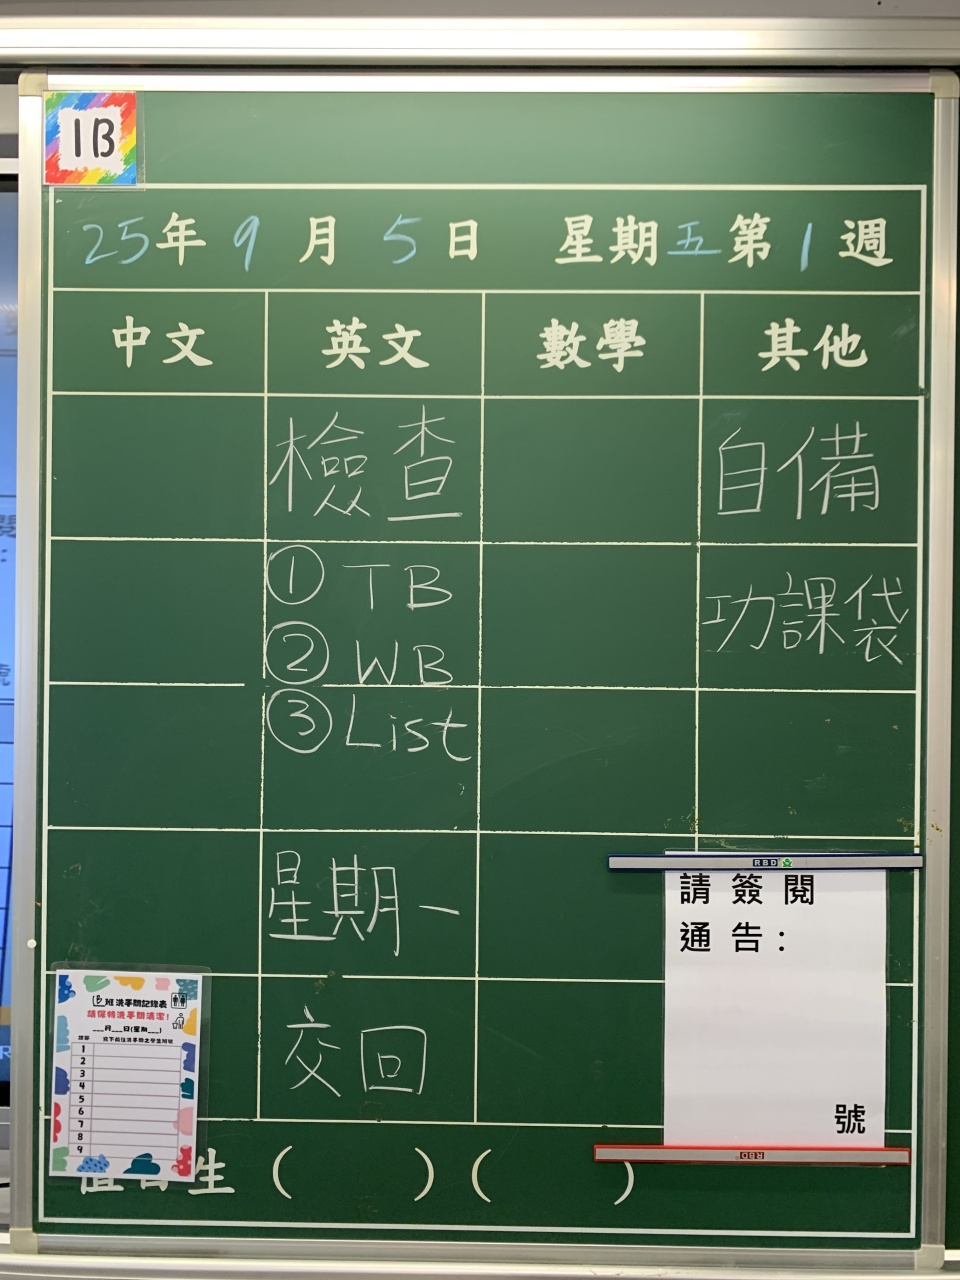 1B
25年9月5日 星期五第1週
中文 英文 數學 其他
檢查 自備
① TB
功課袋
② WB
③ List
星期一
交回
RBD
請簽閱
通告:
號
RBD
1B班洗手間記錄表
請保持洗手間清潔!
___月___日(星期___)
1
2
3
4
5
6
7
8
9
生 ( ) ( )